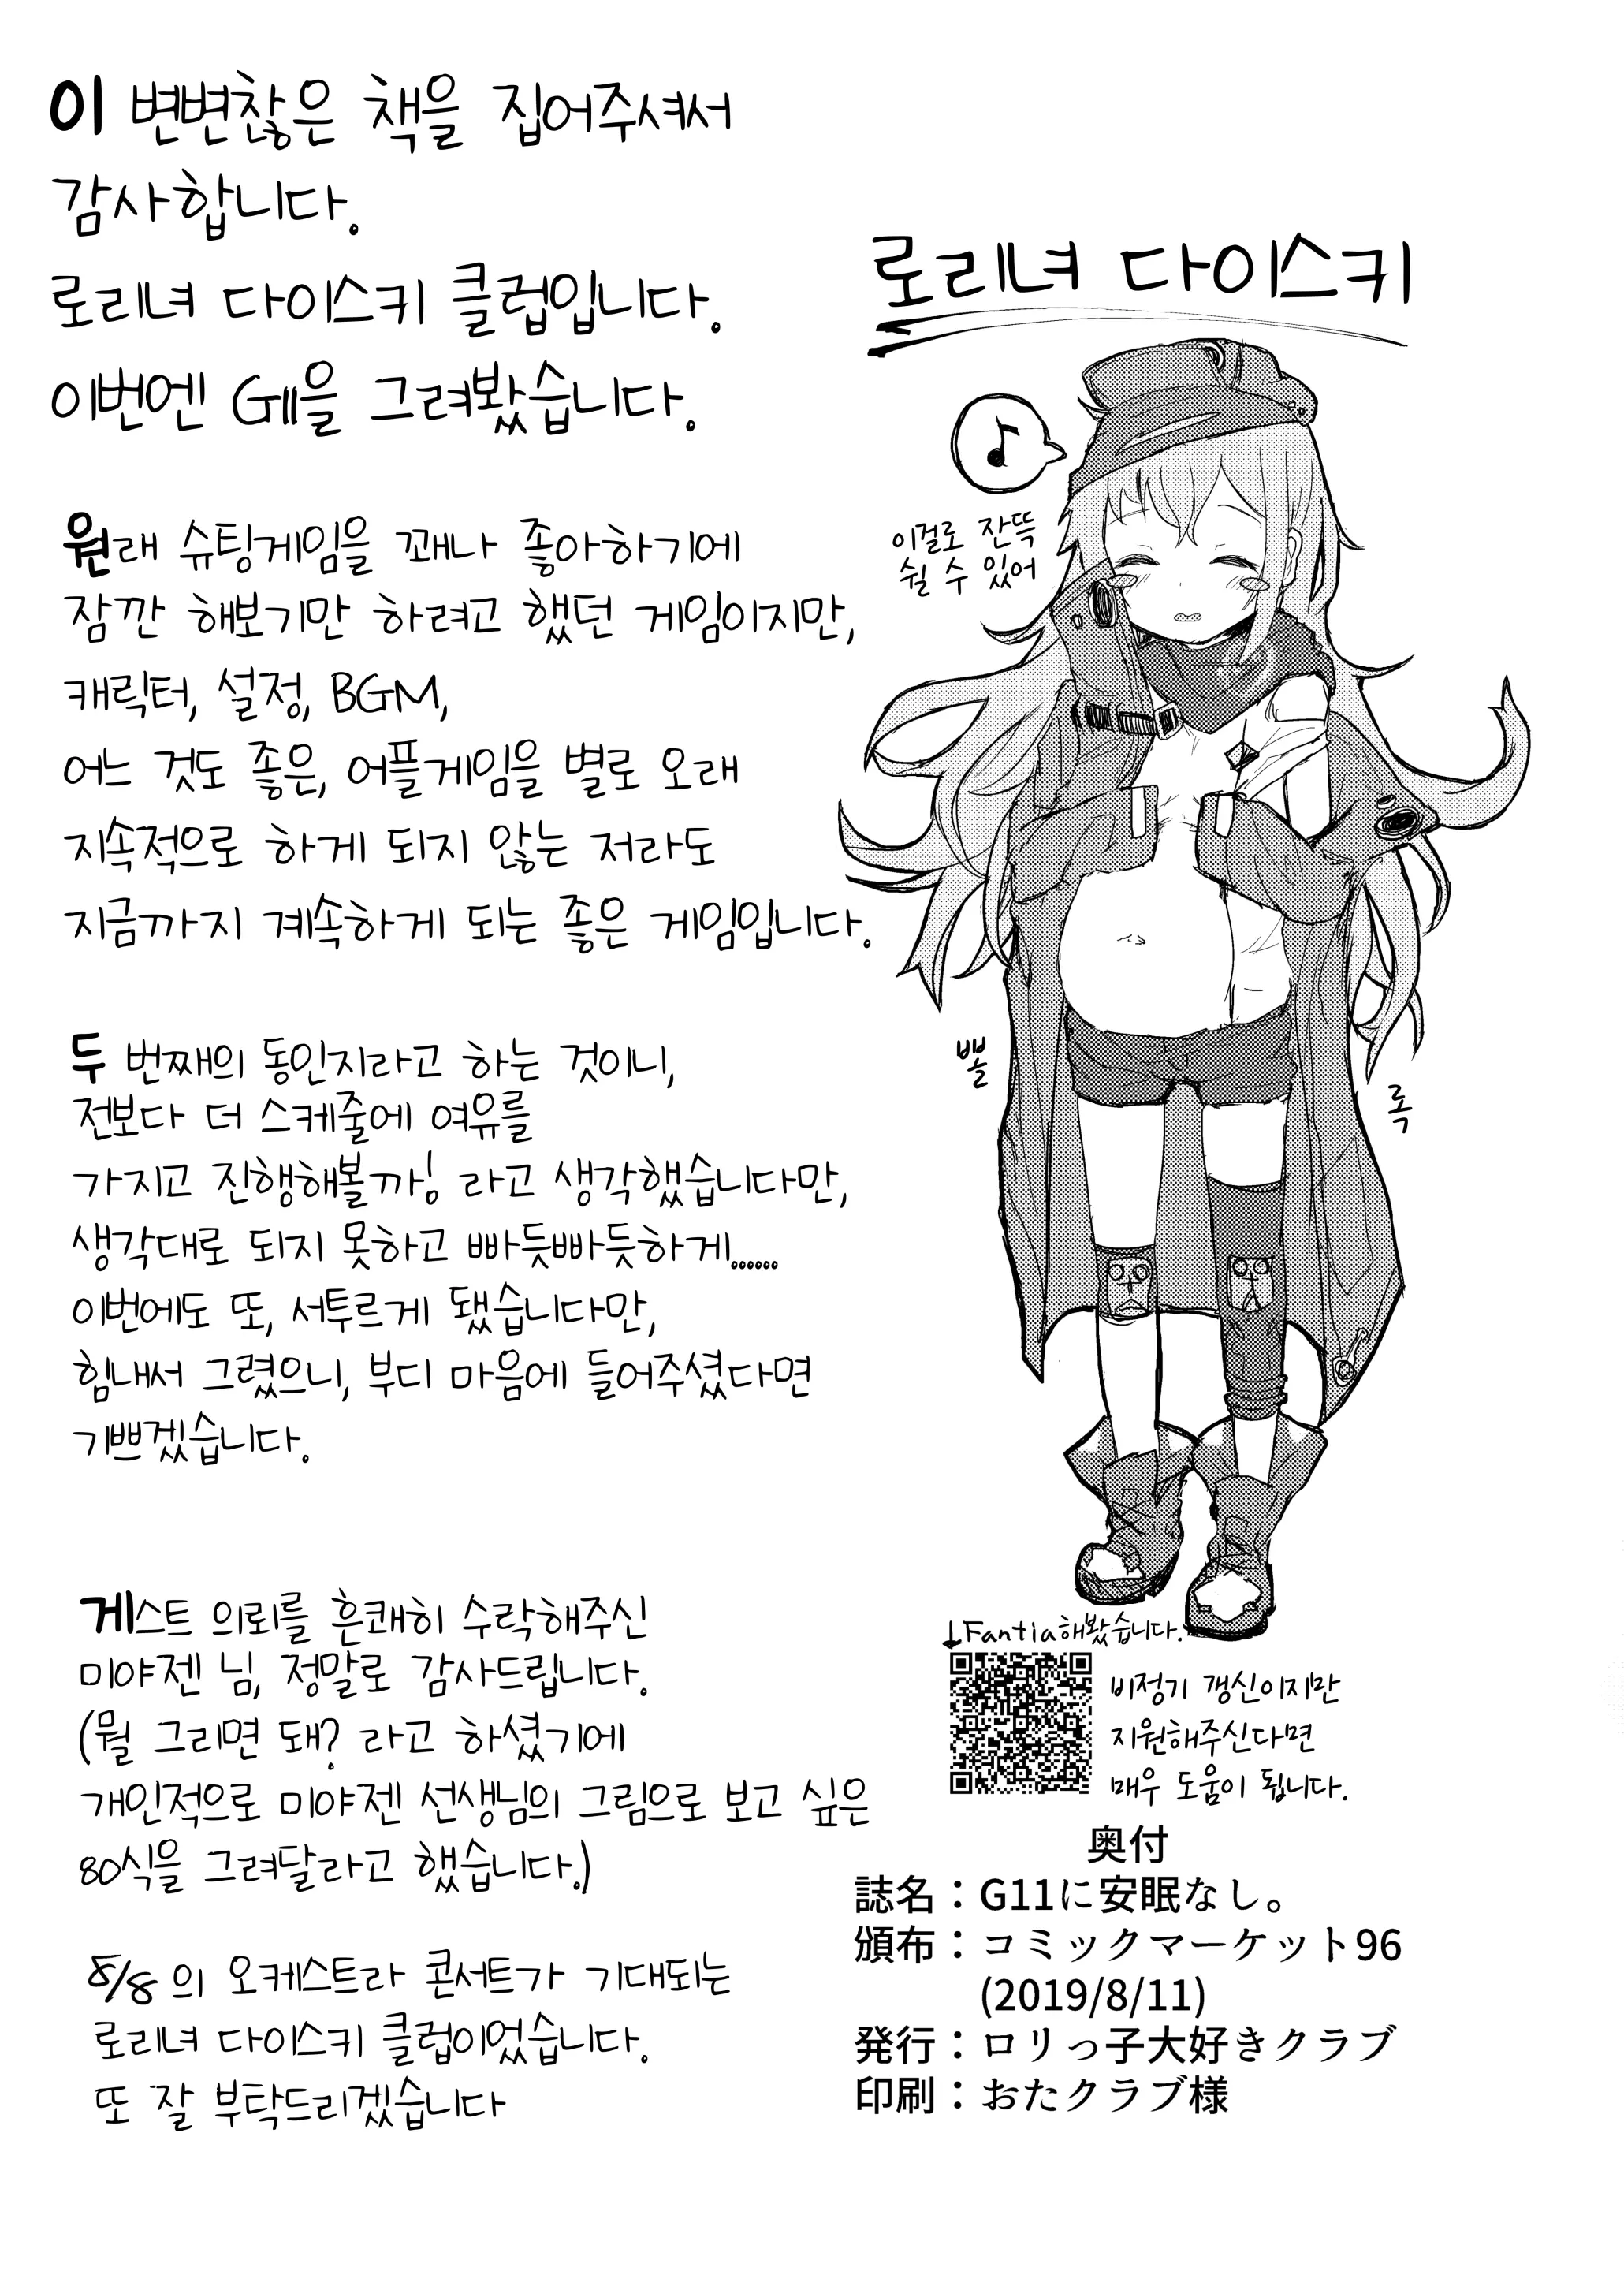 이 변변찮은 책을 집어주셔서
감사합니다.
로리녀 다이스키 클럽입니다.
이번엔 G11을 그려봤습니다.
원래 슈팅게임을 꽤나 좋아하기에
잠깐 해보기만 하려고 했던 게임이지만,
캐릭터, 설정, BGM,
어느 것도 좋은, 어플게임을 별로 오래
지속적으로 하게 되지 않는 저라도
지금까지 계속하게 되는 좋은 게임입니다.
두 번째의 동인지라고 하는 것이니,
전보다 더 스케줄에 여유를
가지고 진행해볼까! 라고 생각했습니다만,
생각대로 되지 못하고 빠듯빠듯하게......
이번에도 또, 서투르게 됐습니다만,
힘내서 그렸으니, 부디 마음에 들어주셨다면
기쁘겠습니다.
게스트 의뢰를 흔쾌히 수락해주신
미야젠 님, 정말로 감사드립니다.
(뭘 그리면 돼? 라고 하셨기에
개인적으로 미야젠 선생님의 그림으로 보고 싶은
80식을 그려달라고 했습니다.)
8/8 의 오케스트라 콘서트가 기대되는
로리녀 다이스키 클럽이었습니다.
또 잘 부탁드리겠습니다
로리녀 다이스키
♪
이걸로 잔뜩
쉴 수 있어
뽈
록
↓Fantia해봤습니다.
비정기 갱신이지만
지원해주신다면
매우 도움이 됩니다.
奥付
誌名：G11に安眠なし。
頒布：コミックマーケット96
(2019/8/11)
発行：ロリっ子大好きクラブ
印刷：おたクラブ様